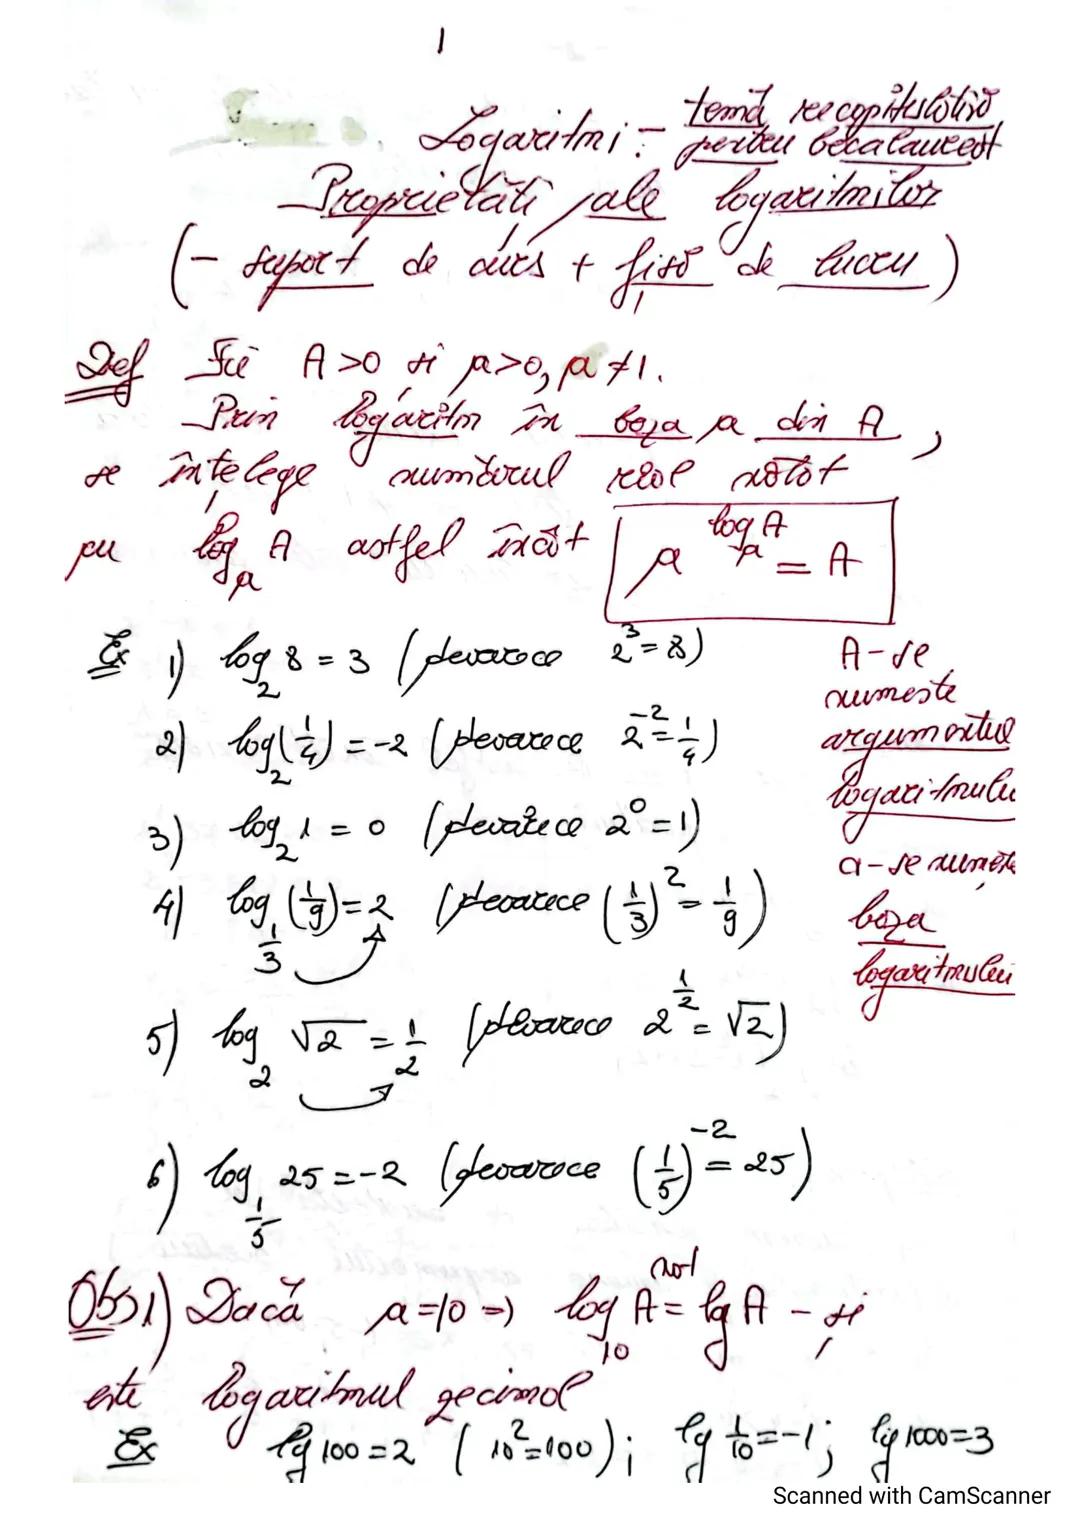 1
Logaritmi :- temă recapitulativă
pentru bacalaureat
Proprietăți ale logaritmilor
(- suport de curs + fișă de lucru)
Def Fie A>0 și a>0, a≠1.
Prin logaritm în baza a din A,
se înțelege numărul real notat
cu log_a A astfel încât a^{log_a A} = A
Ex 1) log_2 8 = 3 (deoarece 2^3 = 8)
2) log_2 (1/4) = -2 (deoarece 2^{-2} = 1/4)
3) log_2 1 = 0 (deoarece 2^0 = 1)
4) log_{1/3} (1/9) = 2 (deoarece (1/3)^2 = 1/9)
5) log_2 √2 = 1/2 (deoarece 2^{1/2} = √2)
6) log_{1/5} 25 = -2 (deoarece (1/5)^{-2} = 25)
A - se
numește
argumentul
logaritmului
a - se numește
baza
logaritmului
Obs 1) Dacă a = 10 => log_{10} A =^{not} lg A - și
este logaritmul zecimal
Ex lg 100 = 2 (10^2 = 100); lg 1/10 = -1; lg 1000 = 3
Scanned with CamScanner